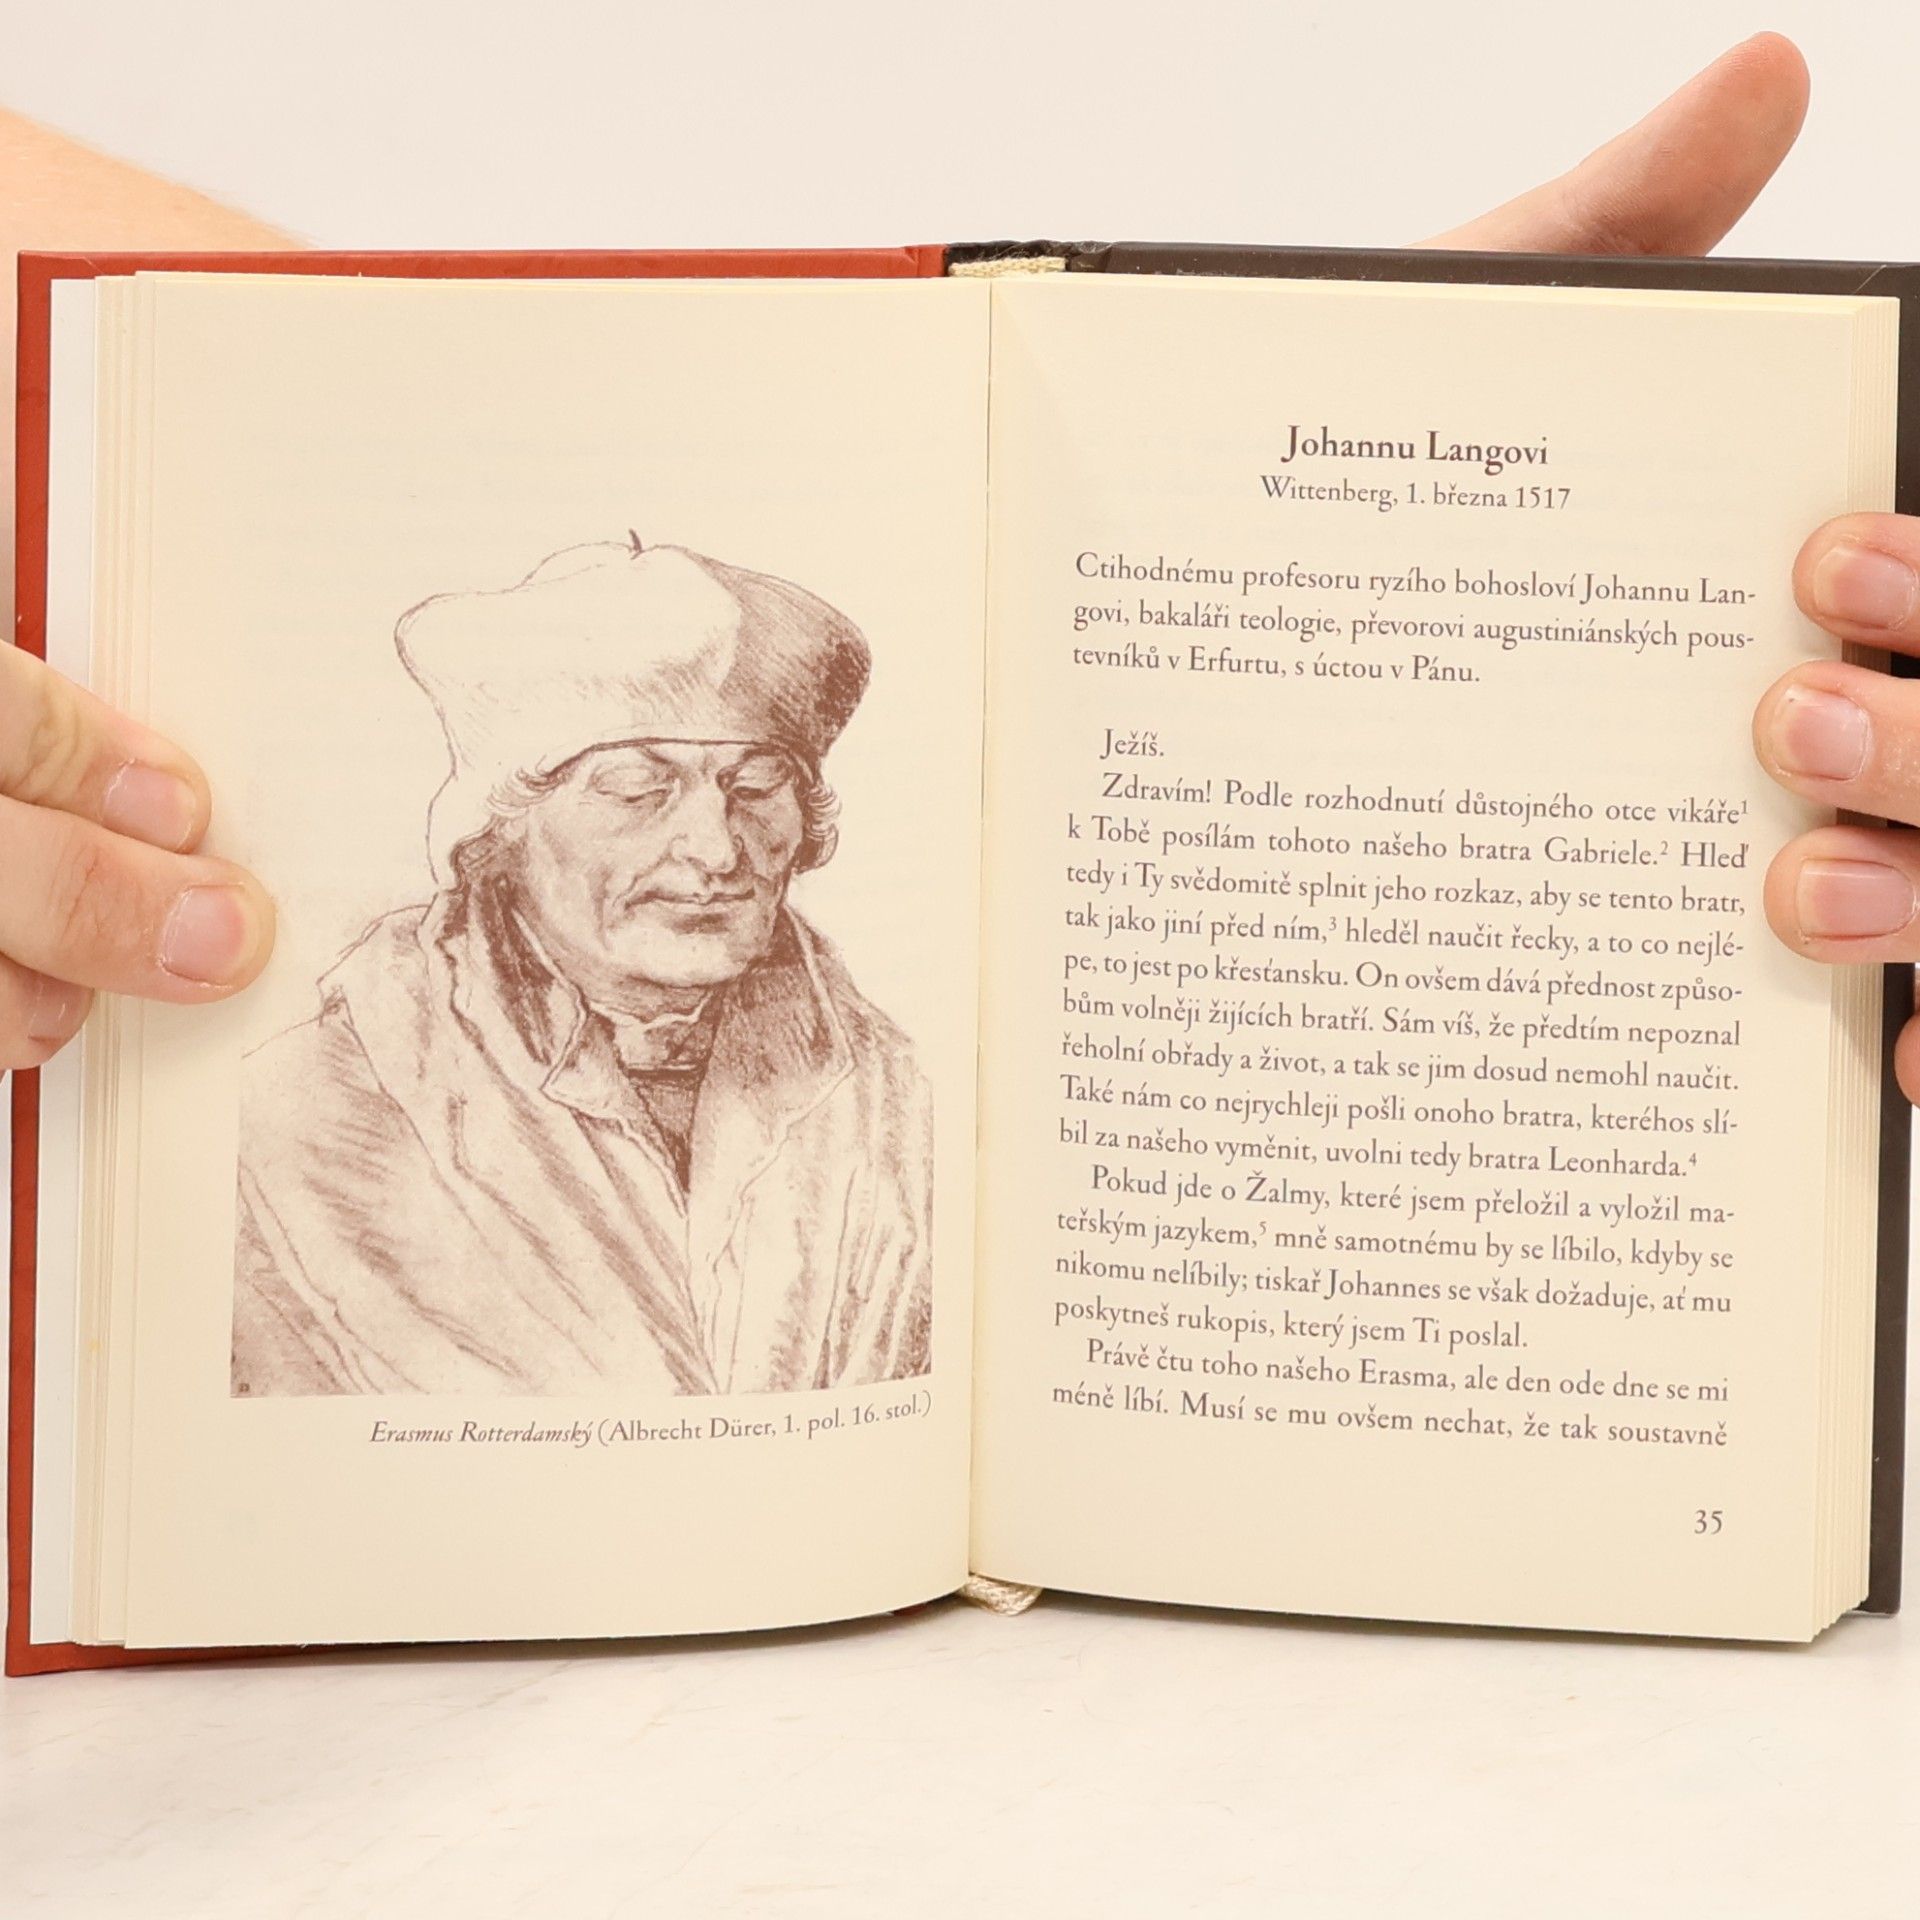 Erasmus Rotterdamský (Albrecht Dürer, 1. pol. 16. stol.)
Johannu Langovi
Wittenberg, 1. března 1517
Ctihodnému profesoru ryzího bohosloví Johannu Lan-
govi, bakaláři teologie, převorovi augustiniánských pous-
tevníků v Erfurtu, s úctou v Pánu.
Ježíš.
Zdravím! Podle rozhodnutí důstojného otce vikáře¹
k Tobě posílám tohoto našeho bratra Gabriele.² Hleď
tedy i Ty svědomitě splnit jeho rozkaz, aby se tento bratr,
tak jako jiní před ním,³ hleděl naučit řecky, a to co nejlé-
pe, to jest po křesťansku. On ovšem dává přednost způso-
bům volněji žijících bratří. Sám víš, že předtím nepoznal
řeholní obřady a život, a tak se jim dosud nemohl naučit.
Také nám co nejrychleji pošli onoho bratra, kteréhos slí-
bil za našeho vyměnit, uvolni tedy bratra Leonharda.⁴
Pokud jde o Žalmy, které jsem přeložil a vyložil ma-
teřským jazykem,⁵ mně samotnému by se líbilo, kdyby se
nikomu nelíbily; tiskař Johannes se však dožaduje, ať mu
poskytneš rukopis, který jsem Ti poslal.
Právě čtu toho našeho Erasma, ale den ode dne se mi
méně líbí. Musí se mu ovšem nechat, že tak soustavně
35